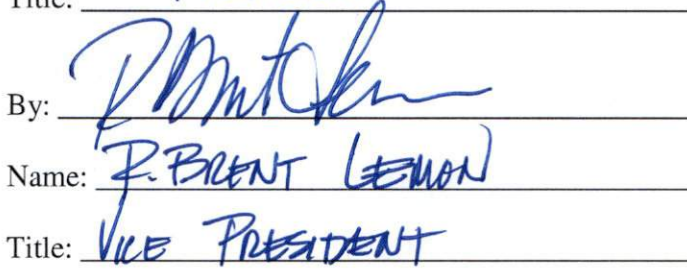 Title:
By:
Name: R. BRENT LEMON
Title: VICE PRESIDENT